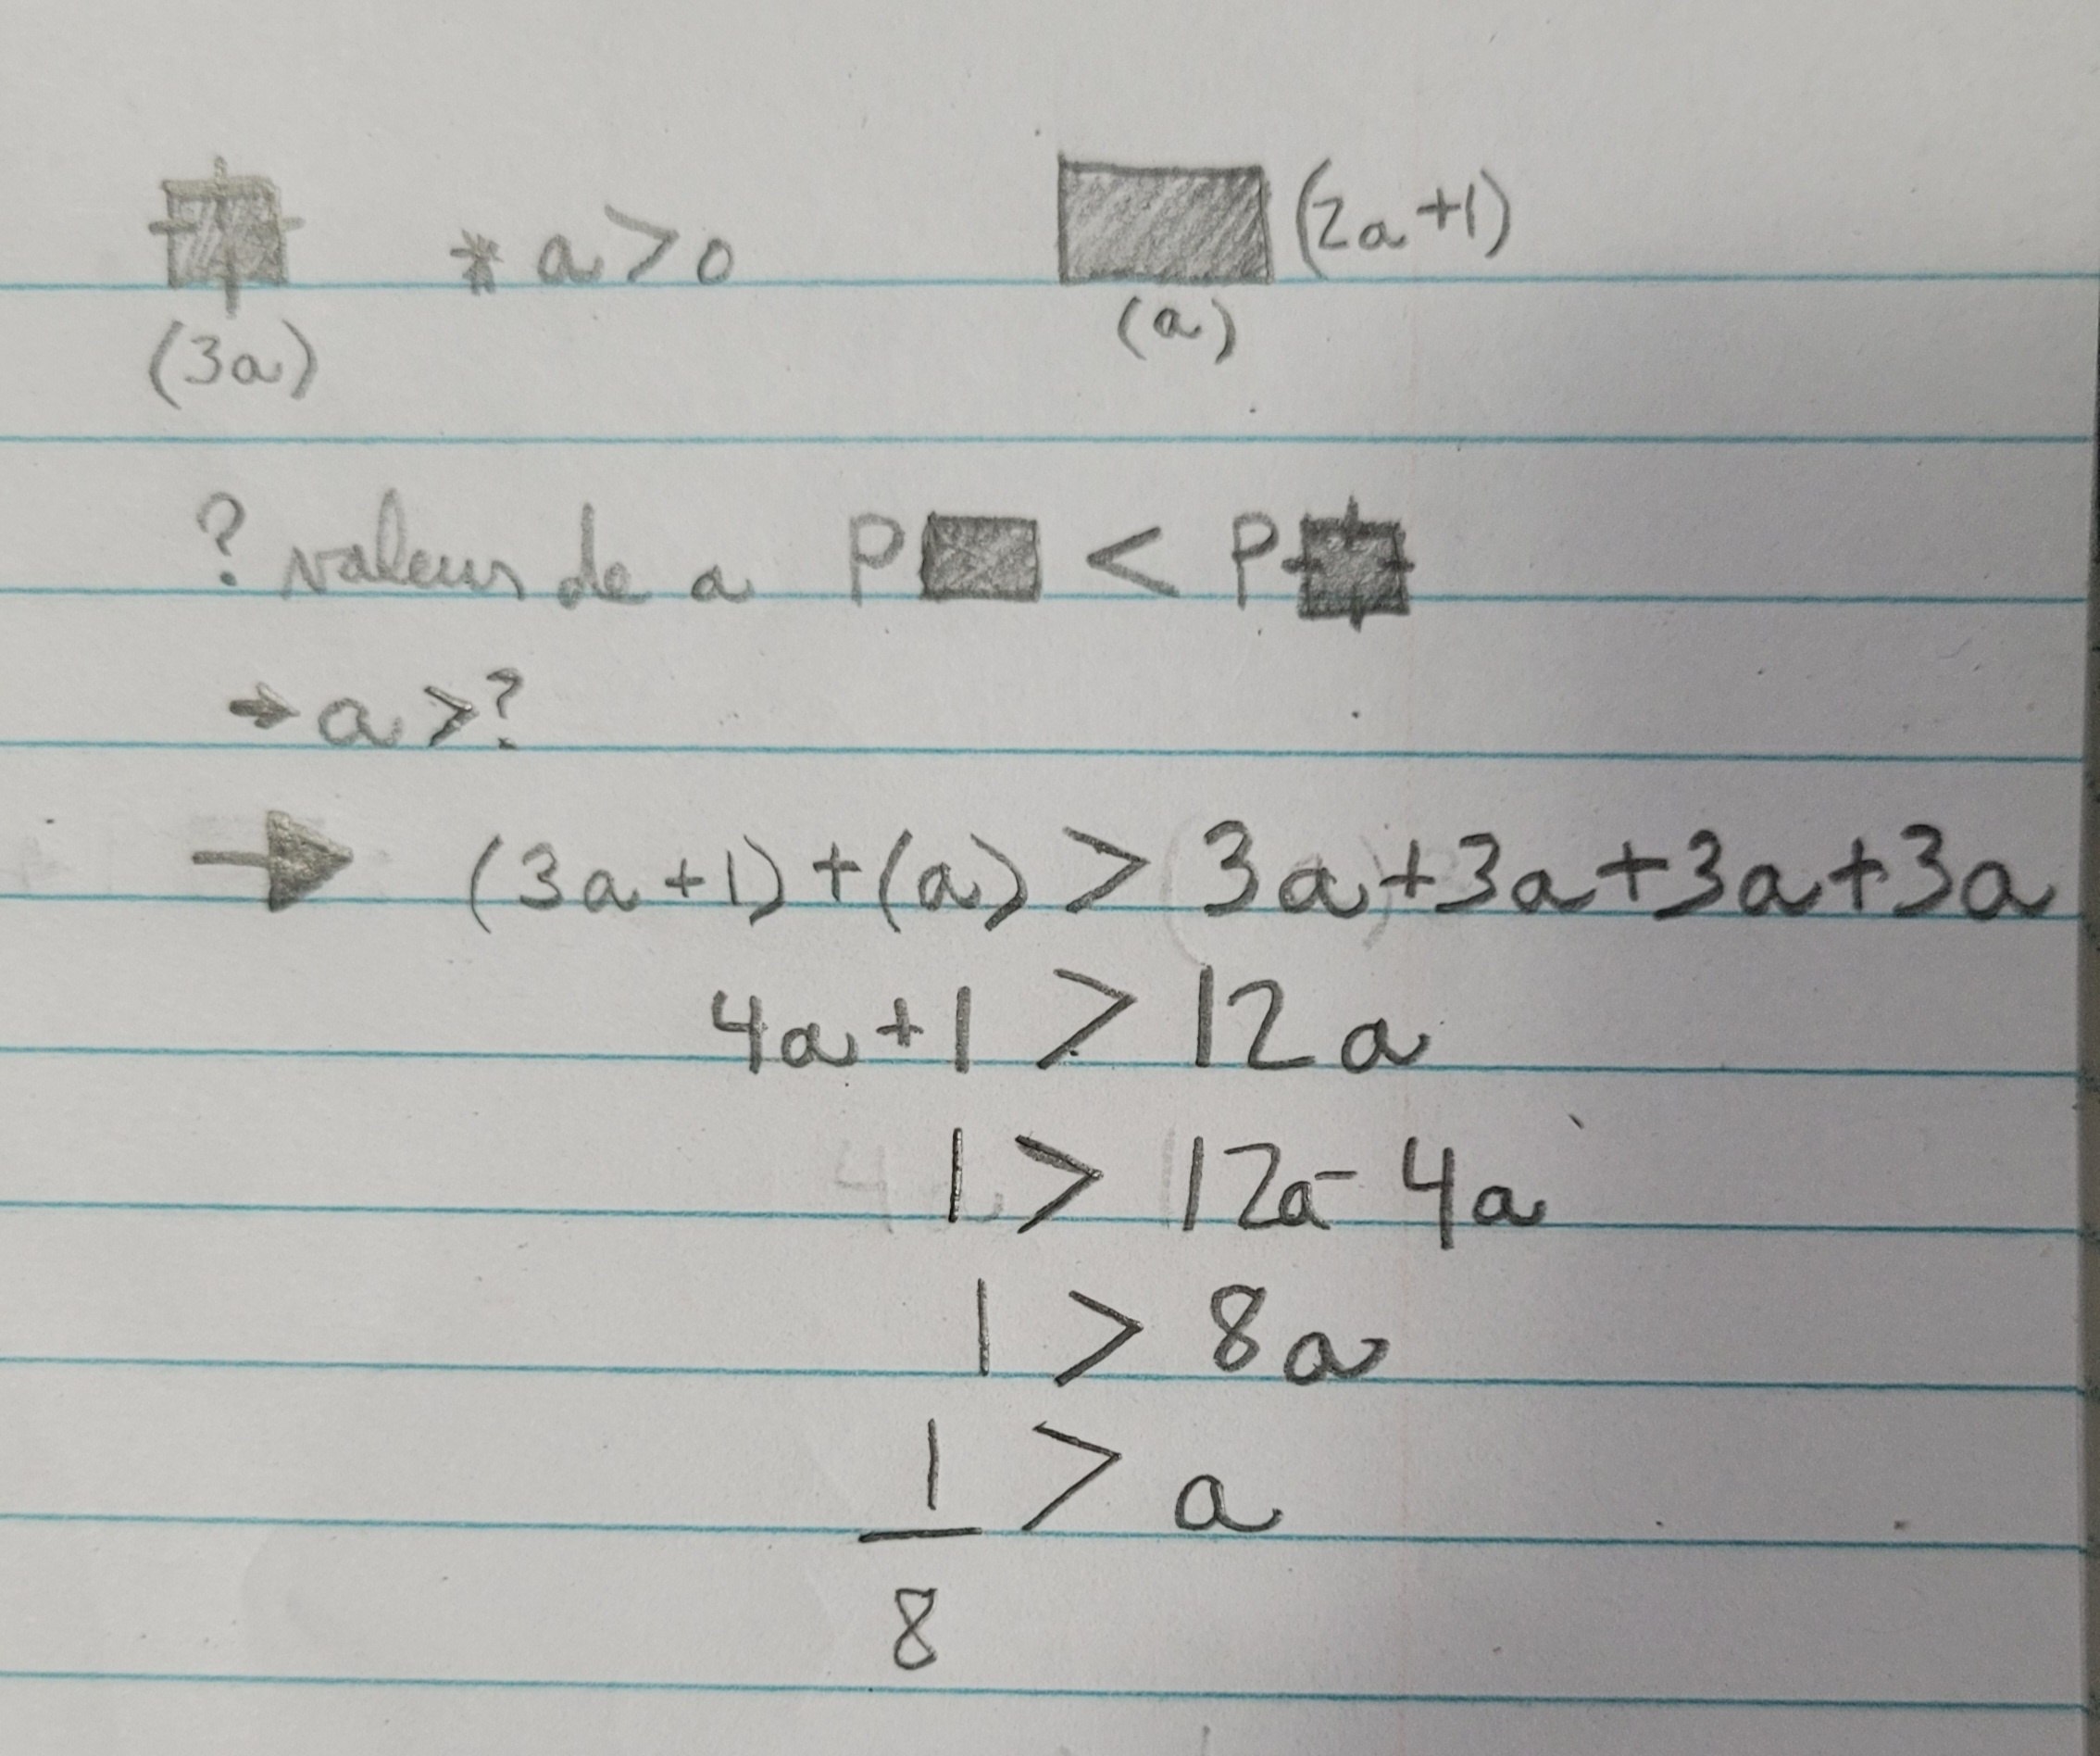 * a > 0
(2a+1)
(3a)
(a)
? valeur de a P < P
→ a > ?
→ (3a+1)+(a) > 3a+3a+3a+3a
4a+1 > 12a
1 > 12a-4a
1 > 8a
1 > a
8